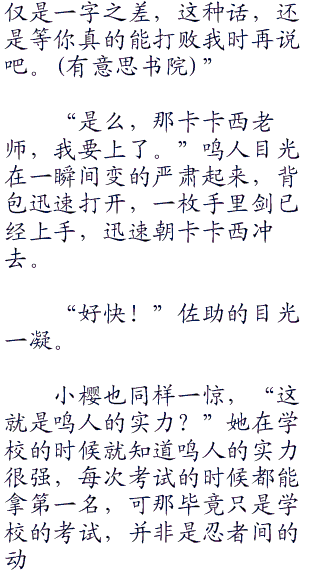 仅是一字之差，这种话，还
是等你真的能打败我时再说
吧。(有意思书院)”
“是么，那卡卡西老
师，我要上了。”鸣人目光
在一瞬间变的严肃起来，背
包迅速打开，一枚手里剑已
经上手，迅速朝卡卡西冲
去。
“好快！”佐助的目光
一凝。
小樱也同样一惊，“这
就是鸣人的实力？”她在学
校的时候就知道鸣人的实力
很强，每次考试的时候都能
拿第一名，可那毕竟只是学
校的考试，并非是忍者间的
动